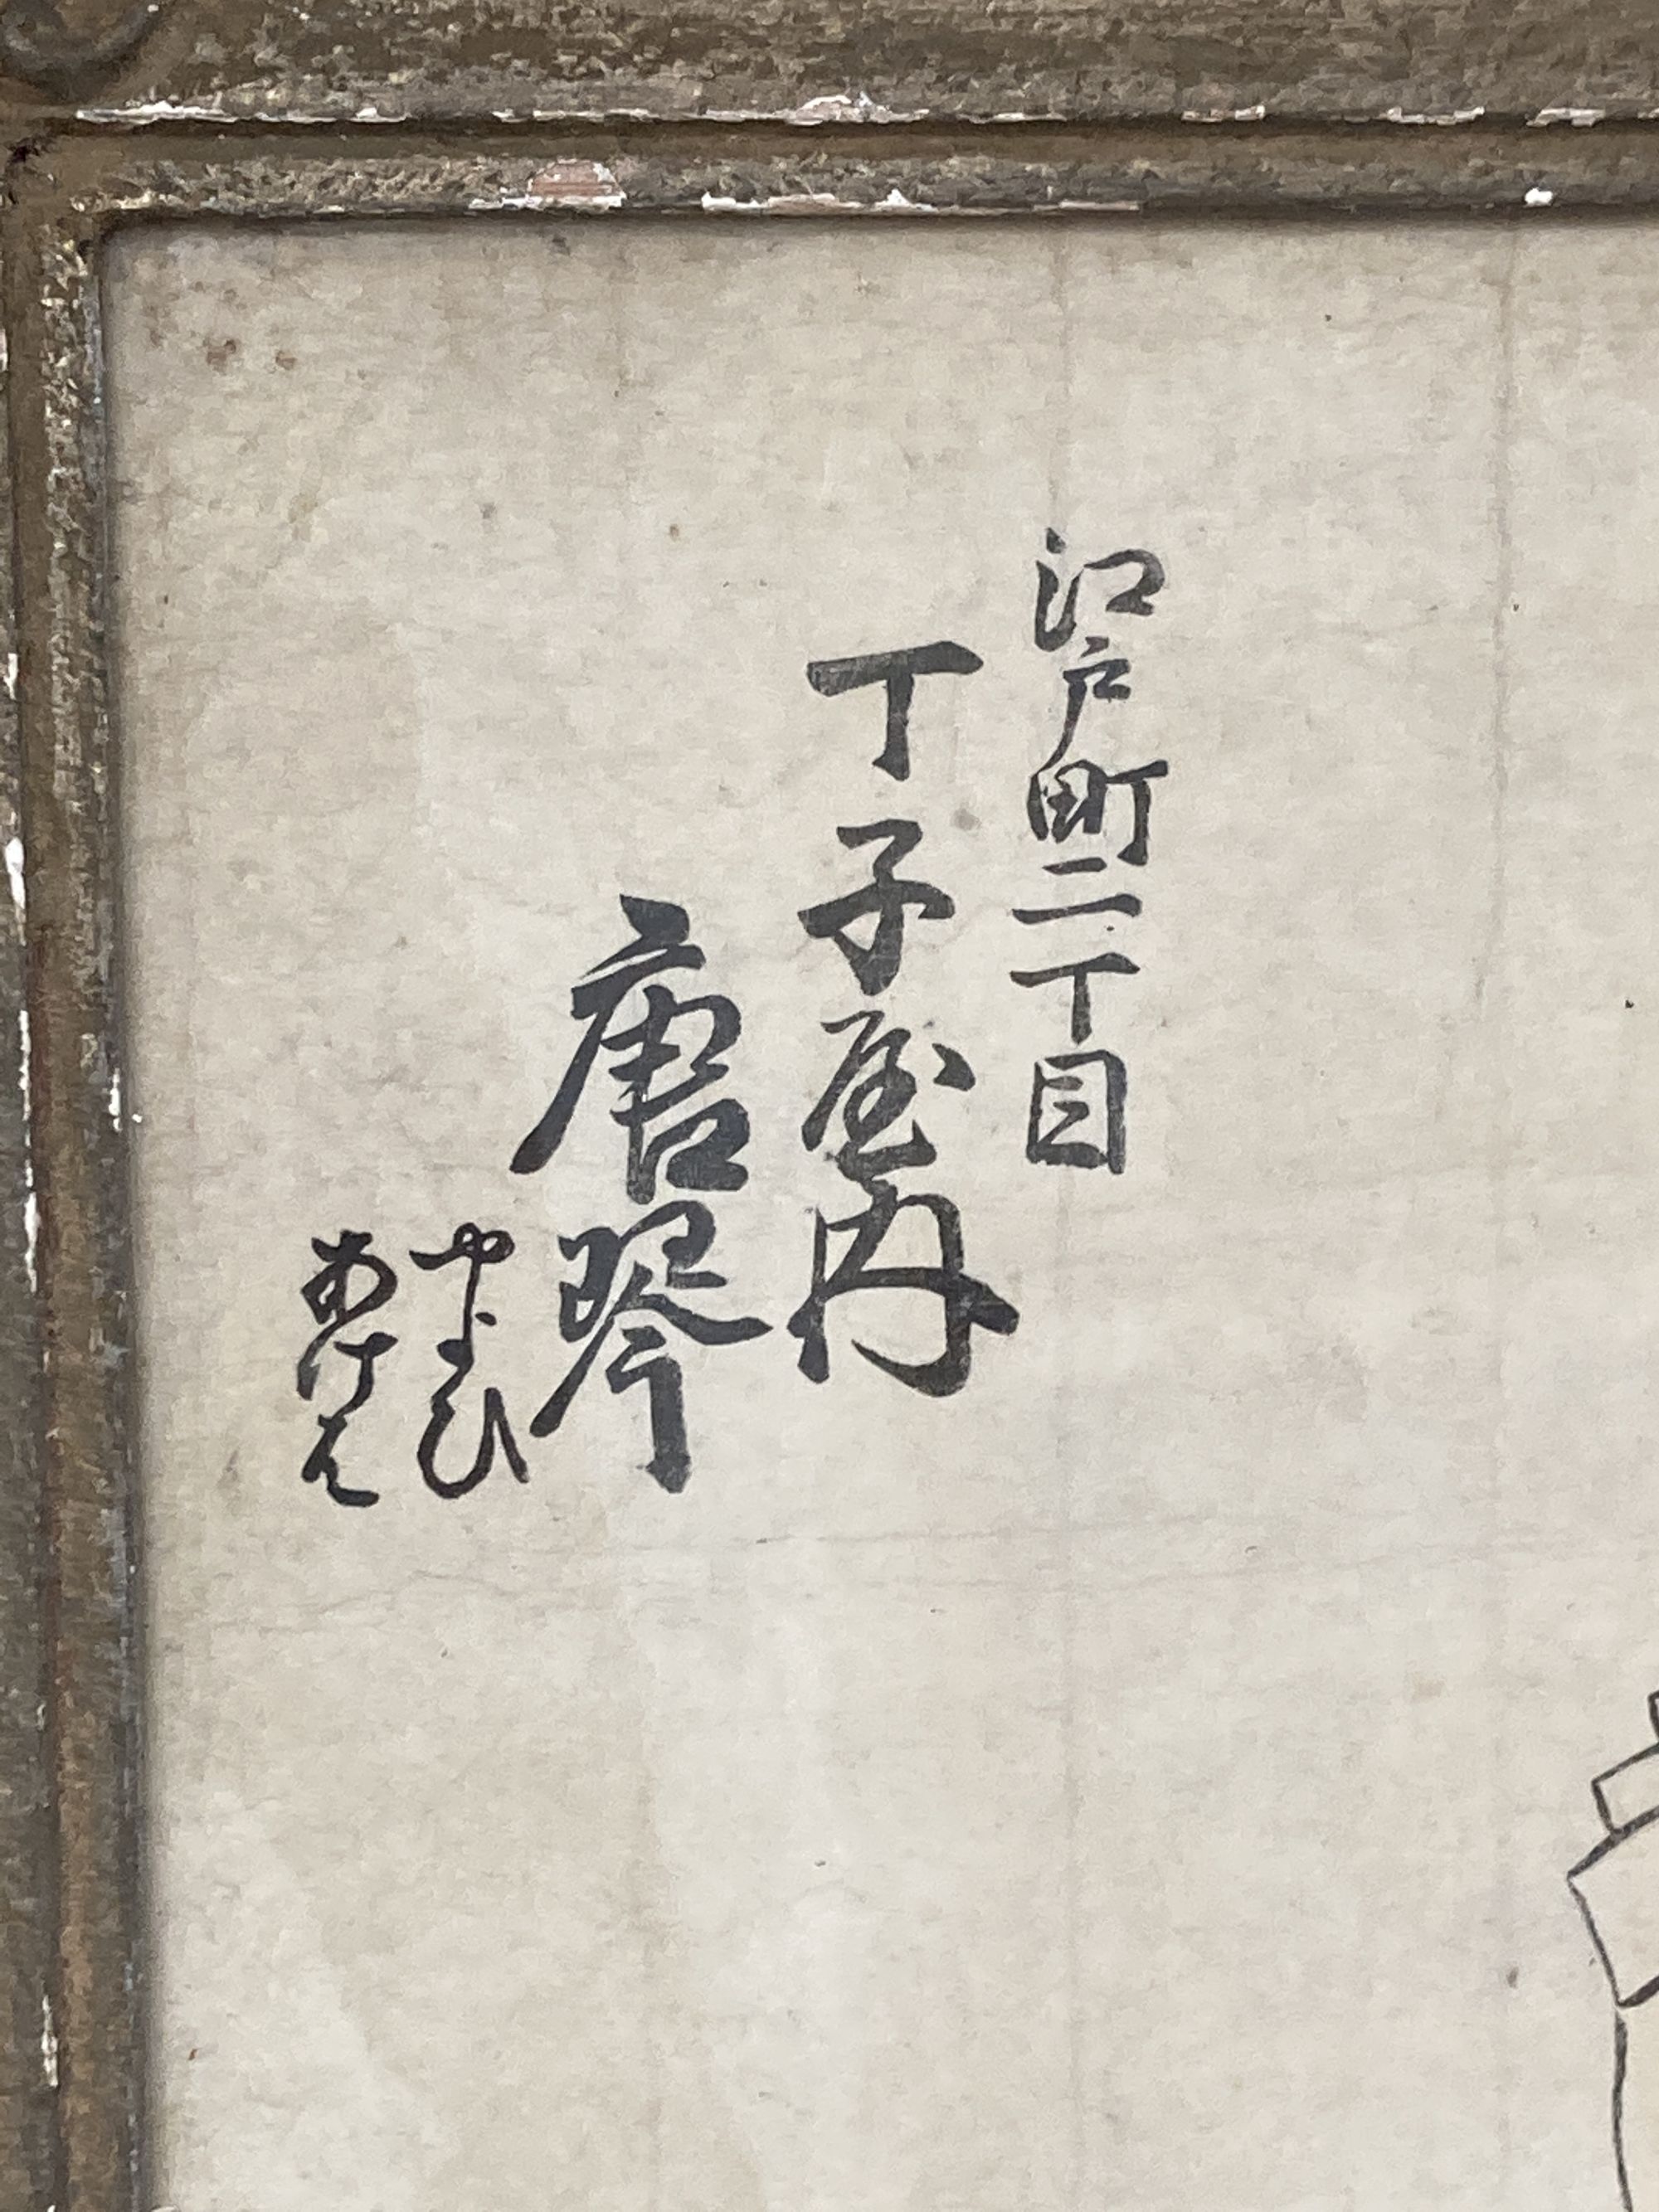 江戸町二丁目
丁子屋内
唐琴
やよひ
あけは